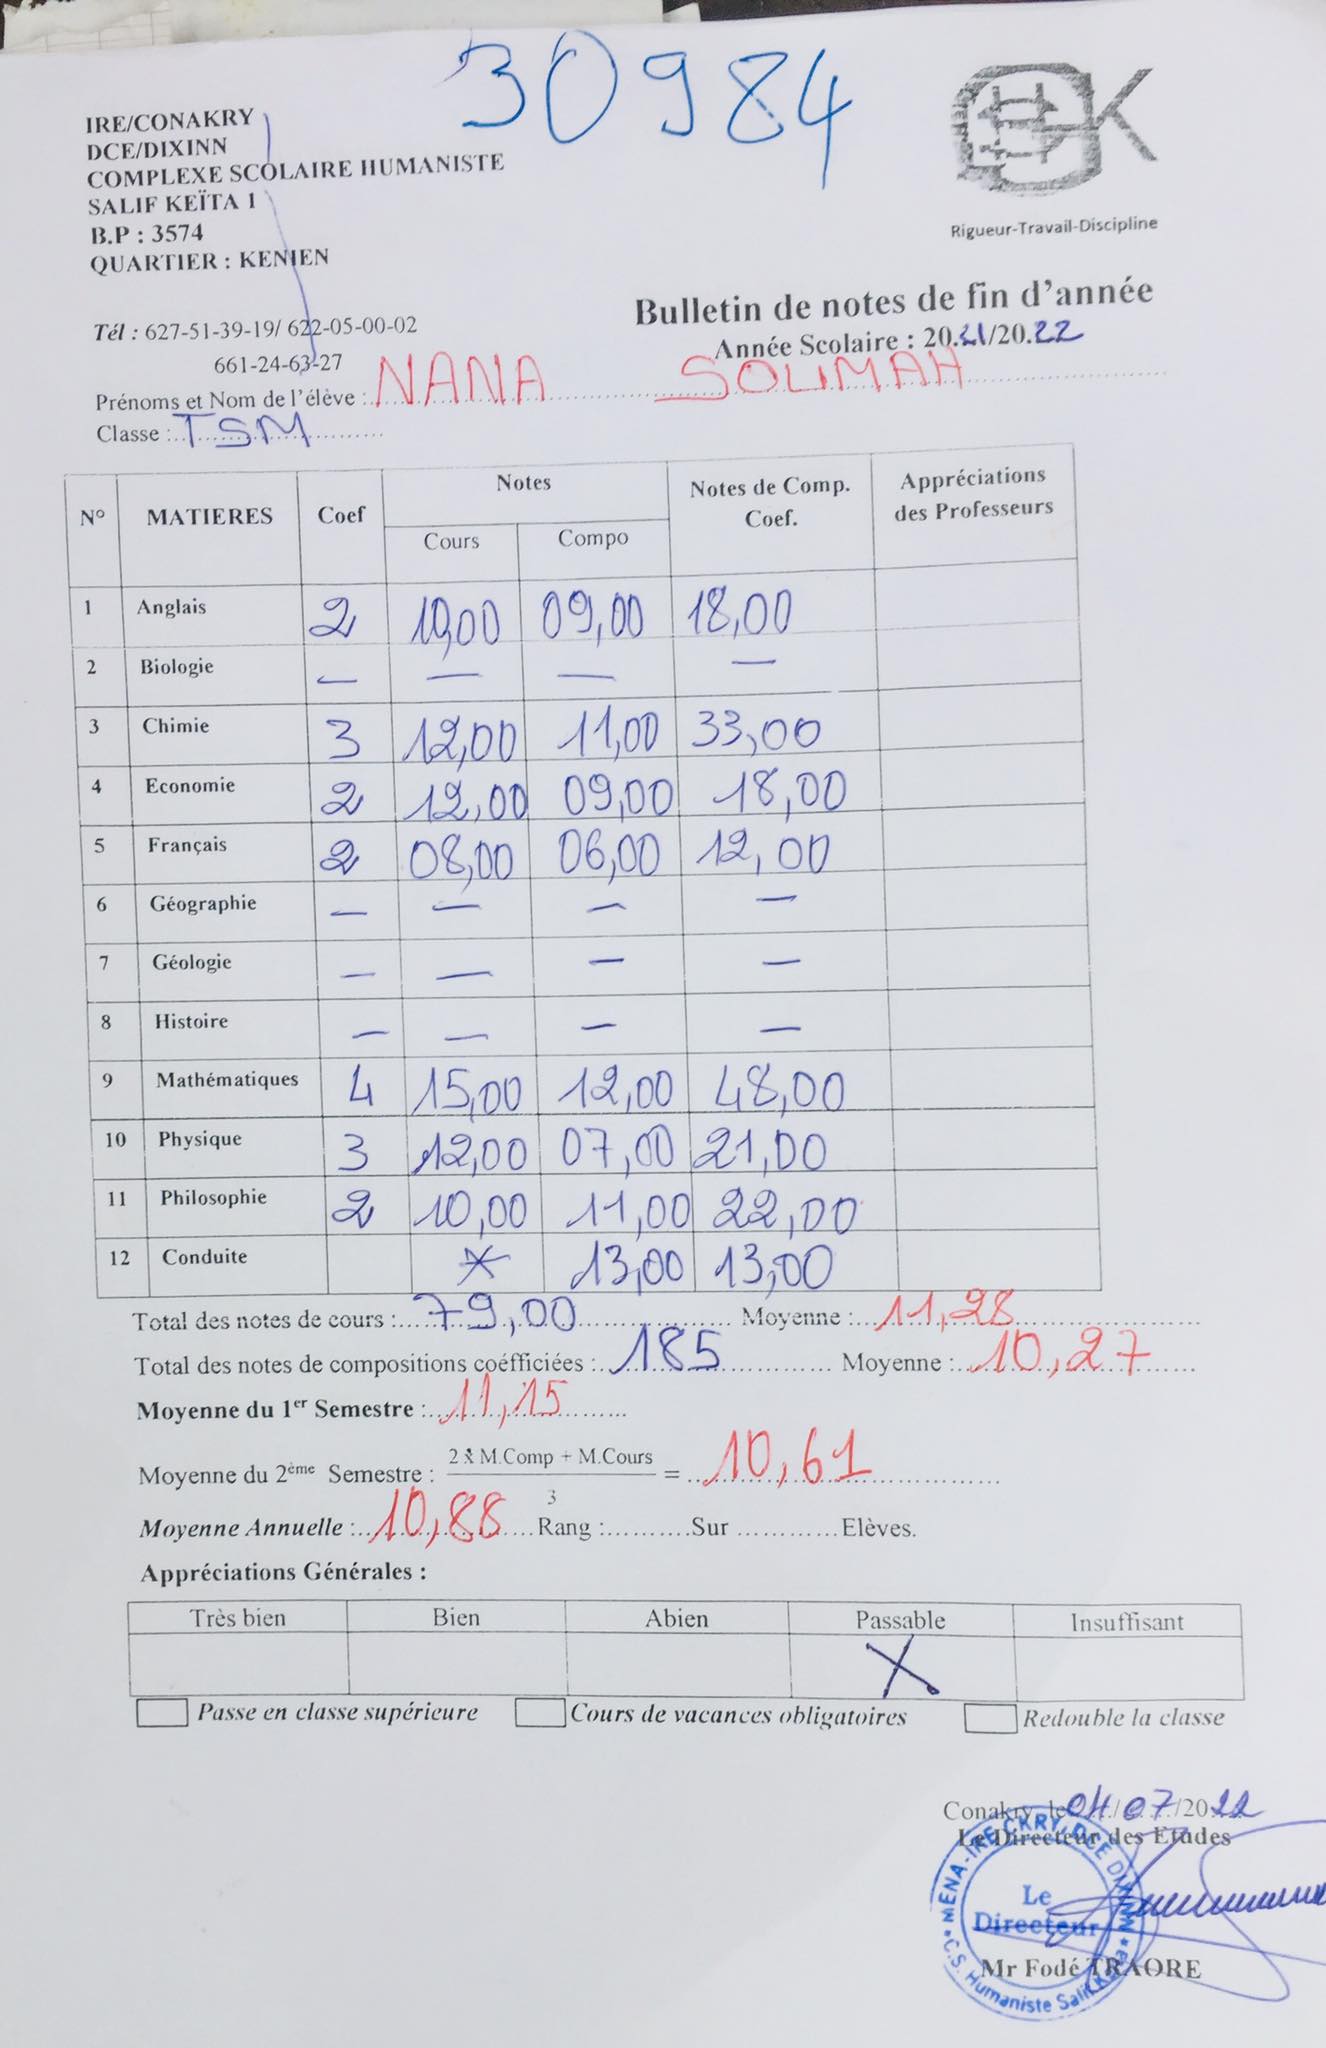 30984
IRE/CONAKRY
DCE/DIXINN
COMPLEXE SCOLAIRE HUMANISTE
SALIF KEÏTA 1
B.P : 3574
QUARTIER : KENIEN
K
Rigueur-Travail-Discipline
Tél : 627-51-39-19/ 622-05-00-02
661-24-63-27
Bulletin de notes de fin d'année
Année Scolaire : 20.21/20.22
Prénoms et Nom de l'élève : NANA SOUMAH
Classe : TSM
N° MATIERES Coef Notes Notes de Comp. Coef. Appréciations des Professeurs
Cours Compo
1 Anglais 2 10,00 09,00 18,00
2 Biologie — — — —
3 Chimie 3 12,00 11,00 33,00
4 Economie 2 12,00 09,00 18,00
5 Français 2 08,00 06,00 12,00
6 Géographie — — — —
7 Géologie — — — —
8 Histoire — — — —
9 Mathématiques 4 15,00 12,00 48,00
10 Physique 3 12,00 07,00 21,00
11 Philosophie 2 10,00 11,00 22,00
12 Conduite * 13,00 13,00
Total des notes de cours : 79,00 Moyenne : 11,28
Total des notes de compositions coéfficiées : 185 Moyenne : 10,27
Moyenne du 1er Semestre : 11,15
Moyenne du 2ème Semestre : 2 x M.Comp + M.Cours = 10,61
3
Moyenne Annuelle : 10,88 Rang :.......... Sur ............ Elèves.
Appréciations Générales :
Très bien Bien Abien Passable Insuffisant
X
Passe en classe supérieure Cours de vacances obligatoires Redouble la classe
Conakry, le 04/07/2022
Le Directeur des Etudes
Le
Directeur
C.S. Humaniste Salif Keita
Mr Fodé TRAORE